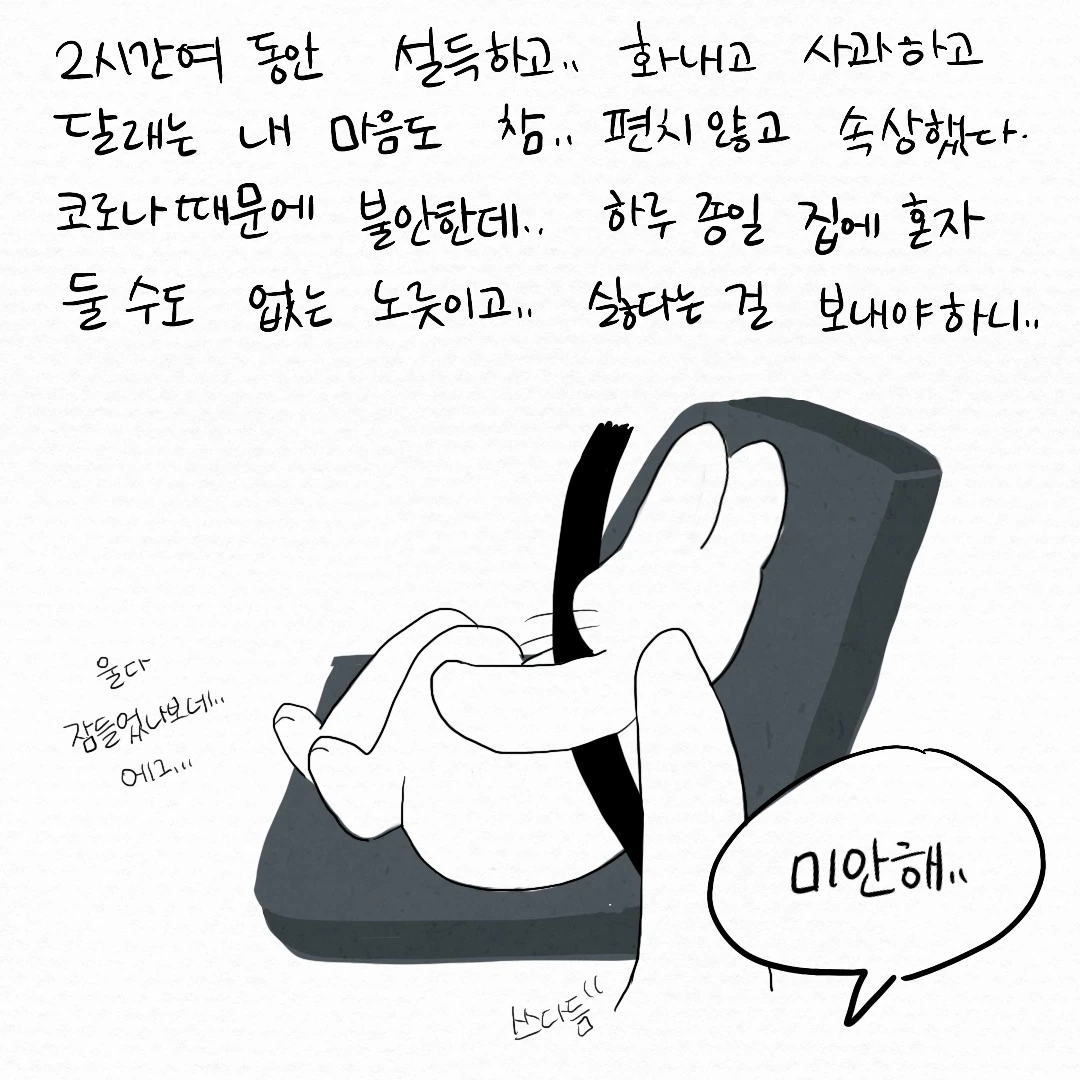 2시간여 동안 설득하고.. 화내고 사과하고
달래는 내 마음도 참.. 편치 않고 속상했다.
코로나때문에 불안한데.. 하루 종일 집에 혼자
둘 수도 없는 노릇이고.. 싫다는 걸 보내야하니..
울다
잠들었나보네..
에그...
미안해..
쓰다듬"